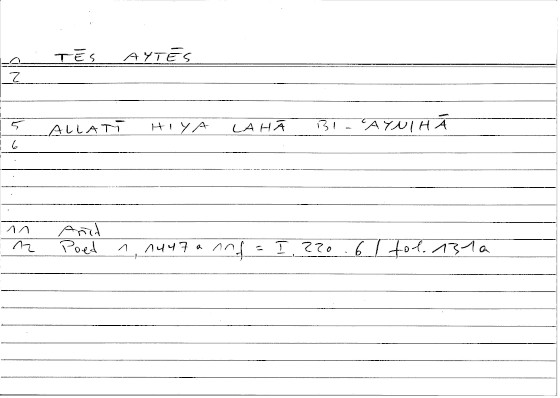 1 TĒS AYTĒS
2
5 ALLATĪ HIYA LAHĀ BI-ʿAYNIHĀ
6
11
12 Poet 1, 1447 a 11f = I, 220.6 / fol. 131a